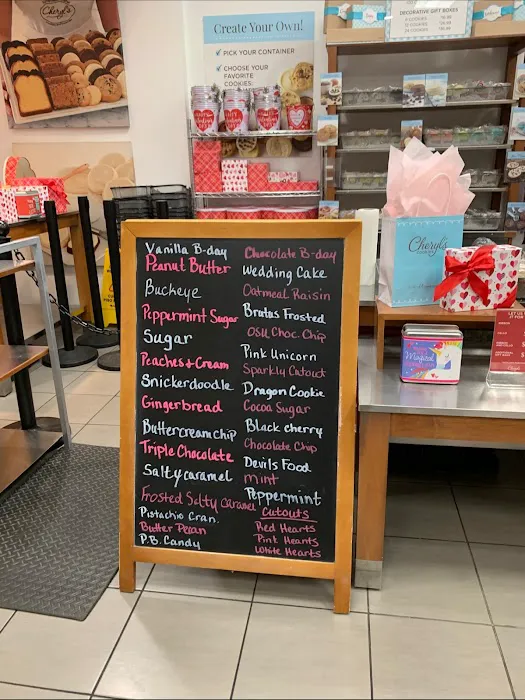 Cheryl's
Create Your Own!
✓ PICK YOUR CONTAINER
✓ CHOOSE YOUR
FAVORITE
COOKIES
DECORATIVE GIFT BOXES
Cheryl's
Vanilla B-day
Peanut Butter
Buckeye
Peppermint Sugar
Sugar
Peaches + Cream
Snickerdoodle
Gingerbread
Buttercream chip
Triple Chocolate
Salty caramel
Frosted Salty Caramel
Pistachio Cran.
Butter Pecan
P.B. Candy
Chocolate B-day
Wedding Cake
Oatmeal Raisin
Brutus Frosted
OSU Choc. Chip
Pink Unicorn
Sparkly Cutout
Dragon Cookie
Cocoa Sugar
Black cherry
Chocolate Chip
Devils Food
Mint
Peppermint
Cutouts
Red Hearts
Pink Hearts
White Hearts
Magical